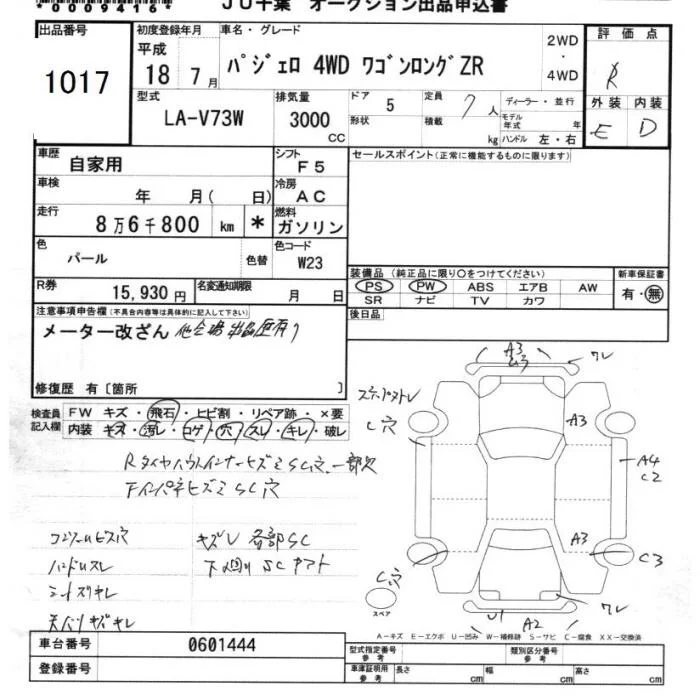 *00009416*
JU千葉 オークション出品申込書
出品番号
1017
初度登録年月
平成
18 7月
車名・グレード
パジェロ 4WD ワゴンロングZR
2WD
・
4WD
評価点
R
外装 内装
E D
型式
LA-V73W
排気量
3000
CC
ドア
5
定員
7人
形状
積載
kg
ディーラー・並行
モデル
年式
年
ハンドル 左・右
車歴
自家用
シフト
F5
セールスポイント(正常に機能するものに限ります)
車検
年 月( 日)
冷房
AC
走行
8万6千800 km *
燃料
ガソリン
色
パール
色替
色コード
W23
R券
15,930円
名変通知期限
月 日
装備品 (純正品に限り○をつけてください)
PS PW ABS エアB AW
SR ナビ TV カワ
新車保証書
有・無
後日品
注意事項申告欄(不具合内容等は具体的に記入して下さい)
メーター改ざん 他会場出品歴有り
修復歴 有〔箇所 〕
検査員
記入欄
FW キズ・飛石・ヒビ割・リペア跡・×要
内装 キズ・汚レ・コゲ・穴・スレ・キレ・破レ
RタイヤハウスインナーヒズミSC穴 一部欠
FインパネヒズミSC穴
コンソールビス穴
キズレ 各部SC
ハンドルスレ
下廻り SCサアト
シートズリキレ
天バリキズキレ
A3
ムラ
ワレ
ステップスレ
C穴
A3
A4
C2
A3
C3
C穴
スペア
U1
A2
ワレ
A-キズ E-エクボ U-凹み W-補修跡 S-サビ C-腐食 XX-交換済
車台番号
0601444
登録番号
型式指定番号
参考
類別区分番号
参考
車庫証明用
参考
長さ cm 幅 cm 高さ cm